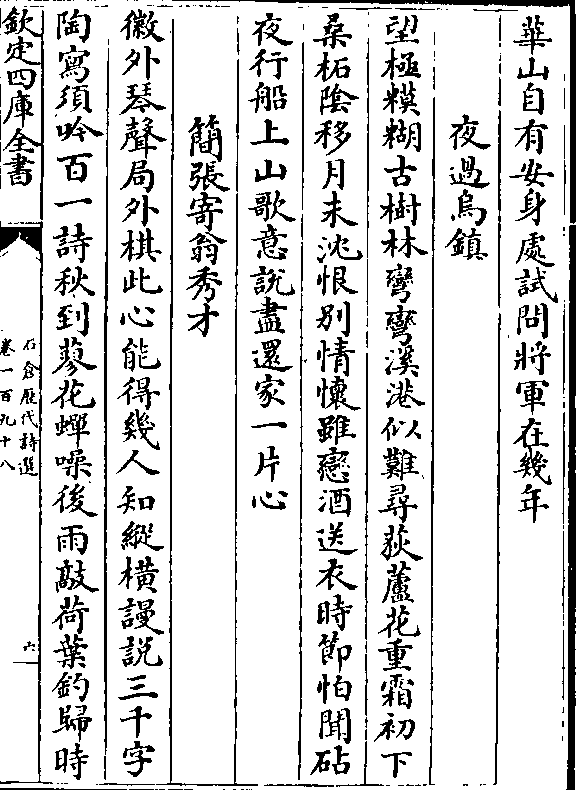 華山自有安身處試問將軍在幾年
夜過烏鎮
望極糢糊古樹林彎彎溪港似難尋荻蘆花重霜初下
桑柘陰移月未沈恨別情懷雖戀酒送衣時節怕聞砧
夜行船上山歌意說盡還家一片心
簡張寄翁秀才
徽外琴聲局外棋此心能得幾人知縱橫謾説三千字
陶寫須吟百一詩秋到蓼花蟬噪後雨敲荷葉釣歸時
欽定四庫全書
石倉歷代詩選
卷一百九十八
六